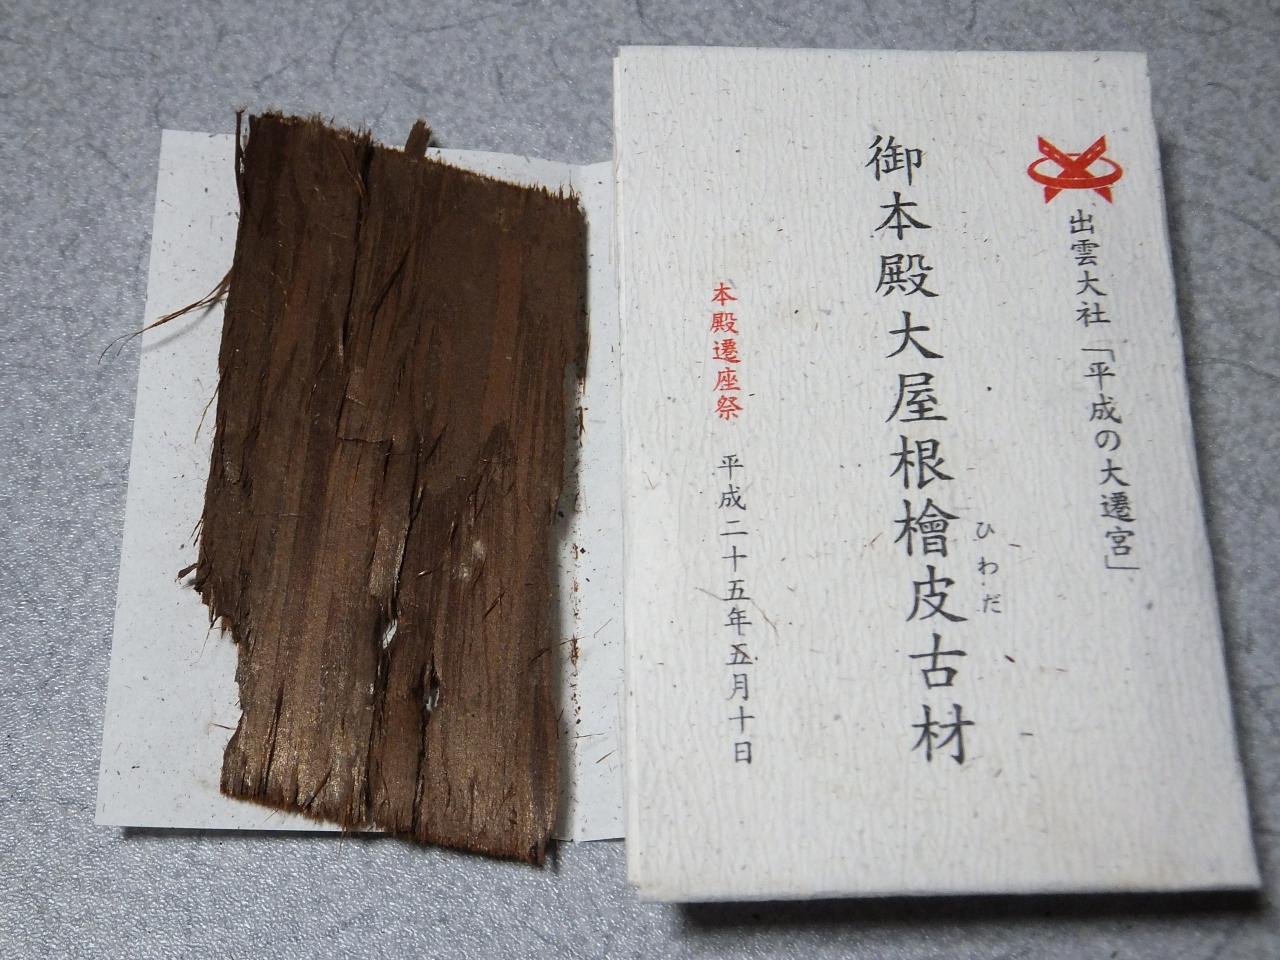 出雲大社「平成の大遷宮」
御本殿大屋根檜皮古材
ひわだ
本殿遷座祭 平成二十五年五月十日